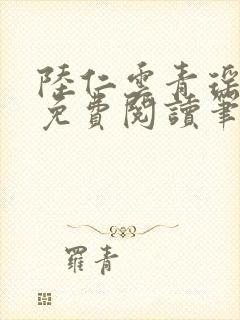 陸仁雲青瑤
免費閱讀筆
羅青